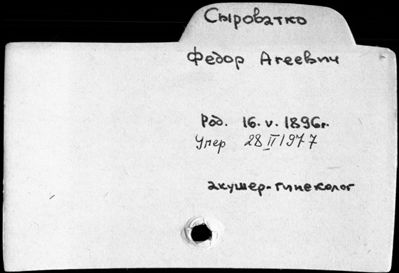 Сыроватко
Федор Агеевич
Род. 16.V.1896г.
Умер 28 II 1977
акушер-гинеколог